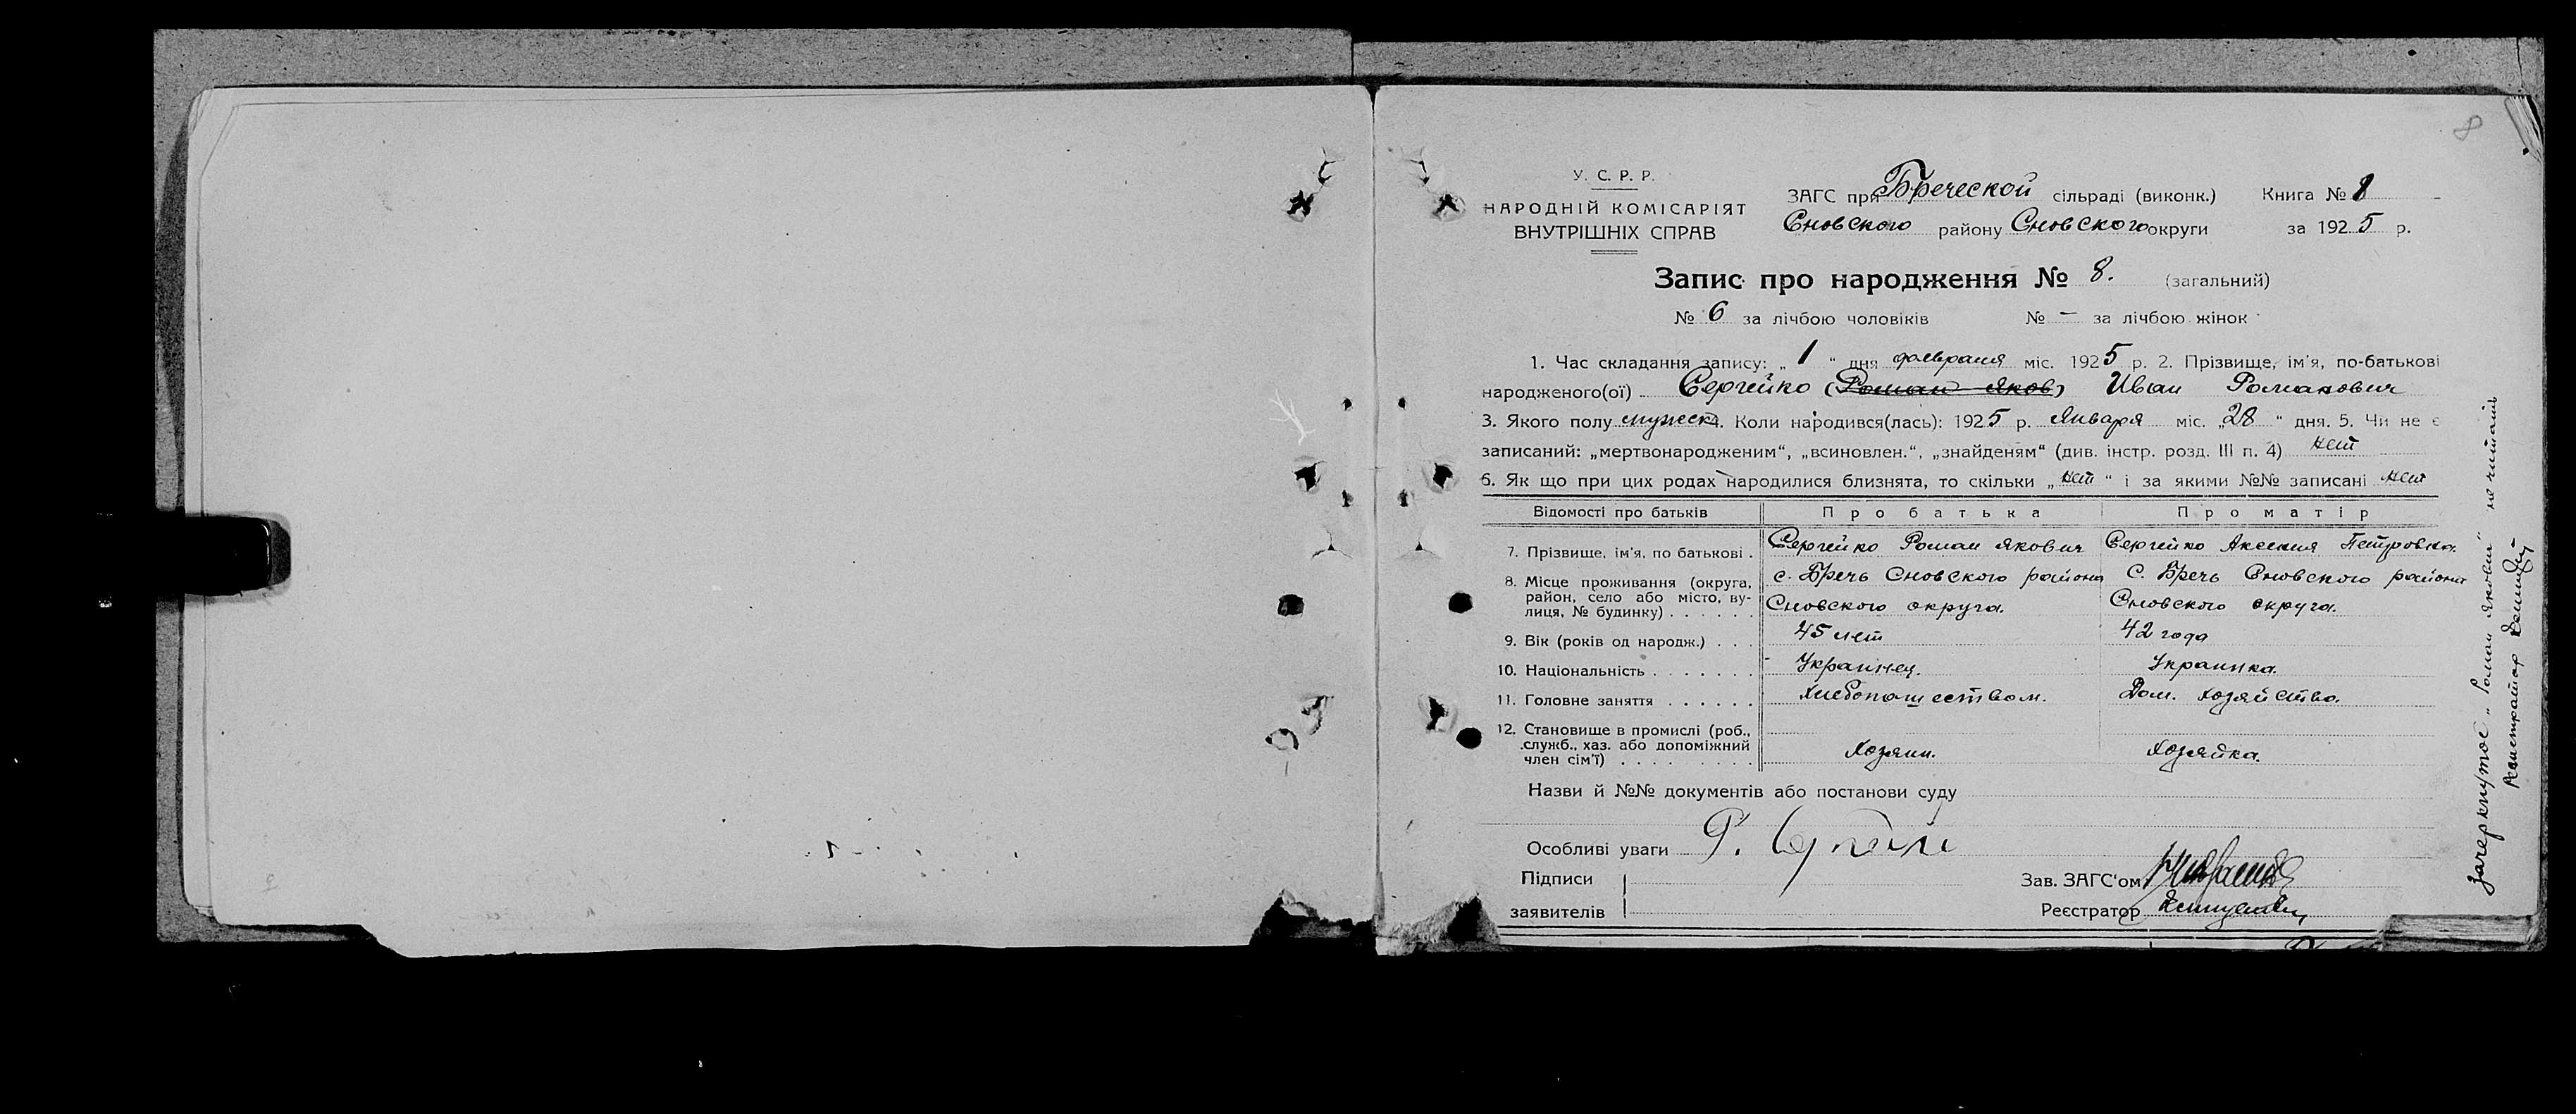 8
У. С. Р. Р.
НАРОДНІЙ КОМІСАРІЯТ
ВНУТРІШНІХ СПРАВ
ЗАГС при Бреческой сільраді (виконк.) Книга №
Сновского району Сновского округи за 1925 р.
Запис про народження № 8. (загальний)
№ 6 за лічбою чоловіків № — за лічбою жінок
1. Час складання запису: „1“ дня февраля міс. 1925 р. 2. Прізвище, ім'я, по-батькові
народженого(ої) Сергейко (Роман Яков) Иван Романович
3. Якого полу мужск 4. Коли народився(лась): 1925 р. Января міс. „28“ дня. 5. Чи не є
записаний: „мертвонародженим“, „всиновлен.“, „знайденям“ (див. інстр. розд. III п. 4) нет
6. Як що при цих родах народилися близнята, то скільки „нет“ і за якими №№ записані нет
Відомості про батьків Про батька Про матір
7. Прізвище, ім'я, по батькові . Сергейко Роман Якович Сергейко Аксения Петровна.
8. Місце проживання (округа, с. Бречь Сновского района С. Бречь Сновского района
район, село або місто, ву-
лиця, № будинку) . . . . . . Сновского округа. Сновского округа.
9. Вік (років од народж.) . . . 45 лет 42 года
10. Національність . . . . . . . Украинец. Украинка.
11. Головне заняття . . . . . . Хлебопашеством. Дом. хозяйство.
12. Становище в промислі (роб.,
служб., хаз. або допоміжний
член сім'ї) . . . . . . . . . Хозяин. Хозяйка.
Назви й №№ документів або постанови суду
Особливі уваги
Підписи
заявителів
Зав. ЗАГС'ом
Реєстратор
Зачеркнутое „Роман Якович“ не читать
Регистратор